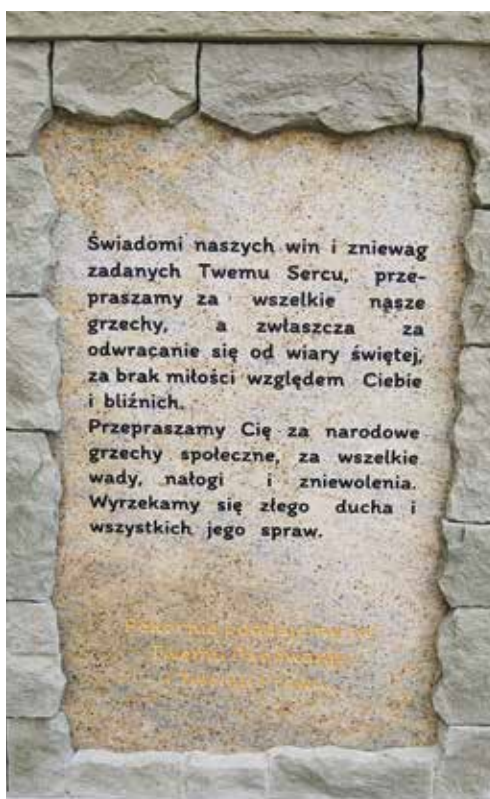 Świadomi naszych win i zniewag
zadanych Twemu Sercu, prze-
praszamy za wszelkie nasze
grzechy, a zwłaszcza za
odwracanie się od wiary świętej,
za brak miłości względem Ciebie
i bliźnich.
Przepraszamy Cię za narodowe
grzechy społeczne, za wszelkie
wady, nałogi i zniewolenia.
Wyrzekamy się złego ducha i
wszystkich jego spraw.
Twemu